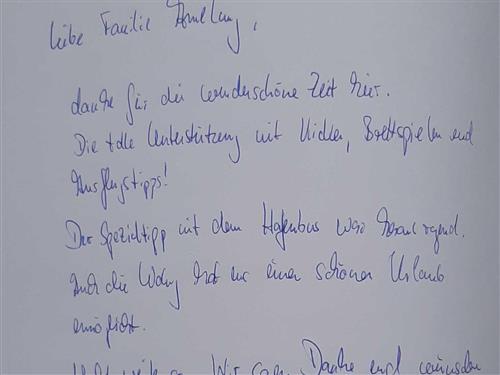 liebe Familie Amelung,
danke für die wunderschöne Zeit hier.
Die tolle Unterstützung mit Kicker, Brettspielen und
Ausflugstipps!
Der Spezialtipp mit dem Hafenbus war herausragend.
Auch die Wohng hat uns einen schönen Urlaub
ermöglicht.
Danke und